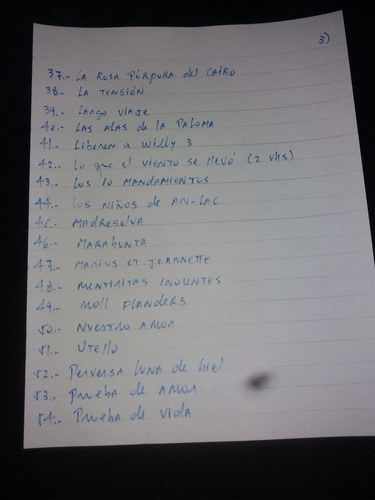 3)
37.- LA ROSA PÚRPURA del CAIRO
38.- LA TENSIÓN
39.- Largo viaje
40.- LAS ALAS de la PALOMA
41.- Liberen a Willy 3
42.- Lo que el viento se llevó (2 vhs)
43.- Los 10 MANDAMIENTOS
44.- LOS NIÑOS de AN-LAC
45.- MADRESELVA
46.- MARABUNTA
47.- MARIUS ET JEANNETTE
48.- MENTIRITAS INOCENTES
49.- MOLL FLANDERS
50.- NUESTRO AMOR
51.- OTELLO
52.- Perversa LUNA de hiel
53.- Prueba de AMOR
54.- Prueba de VIDA